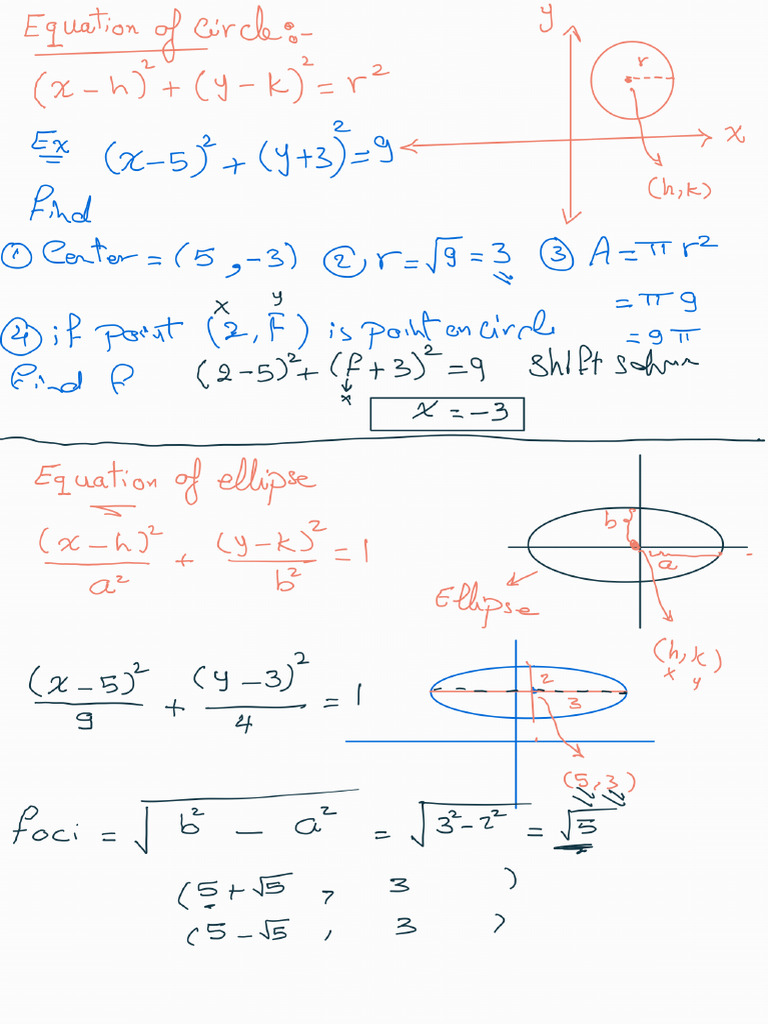 Equation of circle:-
(x-h)² + (y-k)² = r²
y
r
x
(h,k)
Ex (x-5)² + (y+3)² = 9
find
① Center = (5, -3) ② r = √9 = 3 ③ A = π r²
= π 9
= 9 π
x y
④ if point (2, F) is point on circle
find f (2-5)² + (f+3)² = 9 shift solve
x
x = -3
Equation of ellipse
(x-h)²/a² + (y-k)²/b² = 1
b
a
Ellipse
(h,k)
x y
(x-5)²/9 + (y-3)²/4 = 1
2
3
(5,3)
foci = √(b² - a²) = √(3²-2²) = √5
(5+√5, 3)
(5-√5, 3)